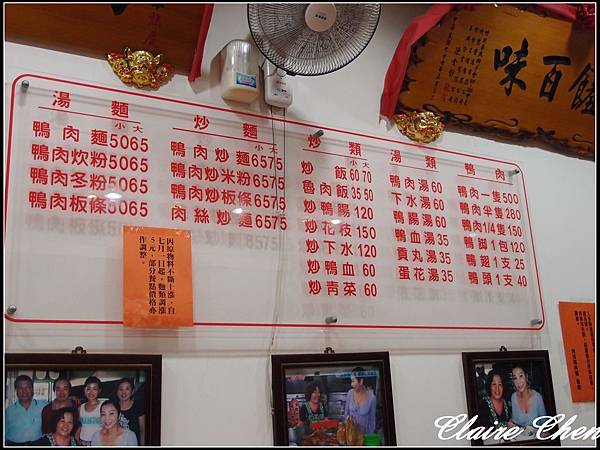 百味
湯麵
小 大
鴨肉麵 50 65
鴨肉炊粉 50 65
鴨肉冬粉 50 65
鴨肉板條 50 65
炒麵
小 大
鴨肉炒麵 65 75
鴨肉炒米粉 65 75
鴨肉炒板條 65 75
肉絲炒麵 65 75
炒類
小 大
炒飯 60 70
魯肉飯 35 50
炒鴨腸 120
炒花枝 150
炒下水 120
炒鴨血 60
炒青菜 60
湯類
鴨肉湯 60
下水湯 60
鴨腸湯 60
鴨血湯 35
貢丸湯 35
蛋花湯 35
鴨肉
鴨肉一隻 500
鴨肉半隻 280
鴨肉1/4 150
鴨腳1包 120
鴨翅1支 25
鴨頭1支 40
因原物料不斷上漲，自
七月一日起，麵類調漲
5元，部分餐點價格亦
作調整。
Claire Chen